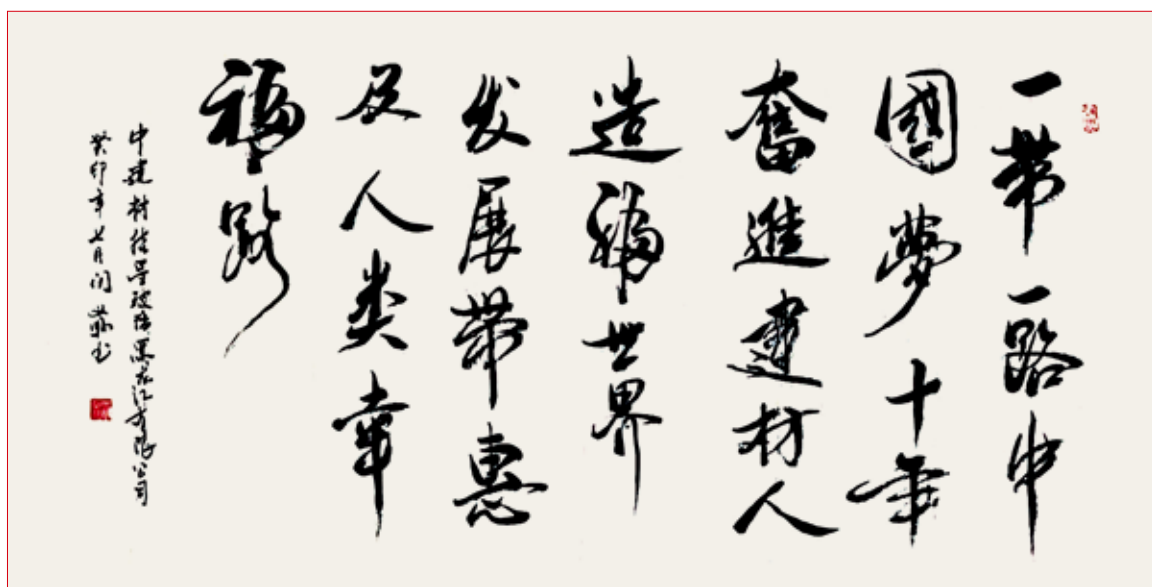 一帶一路中
國夢十年
奮進建材人
造福世界
发展帶惠
及人类幸
福路
中建材佳星玻璃黑龙江有限公司
癸卯年七月闫书